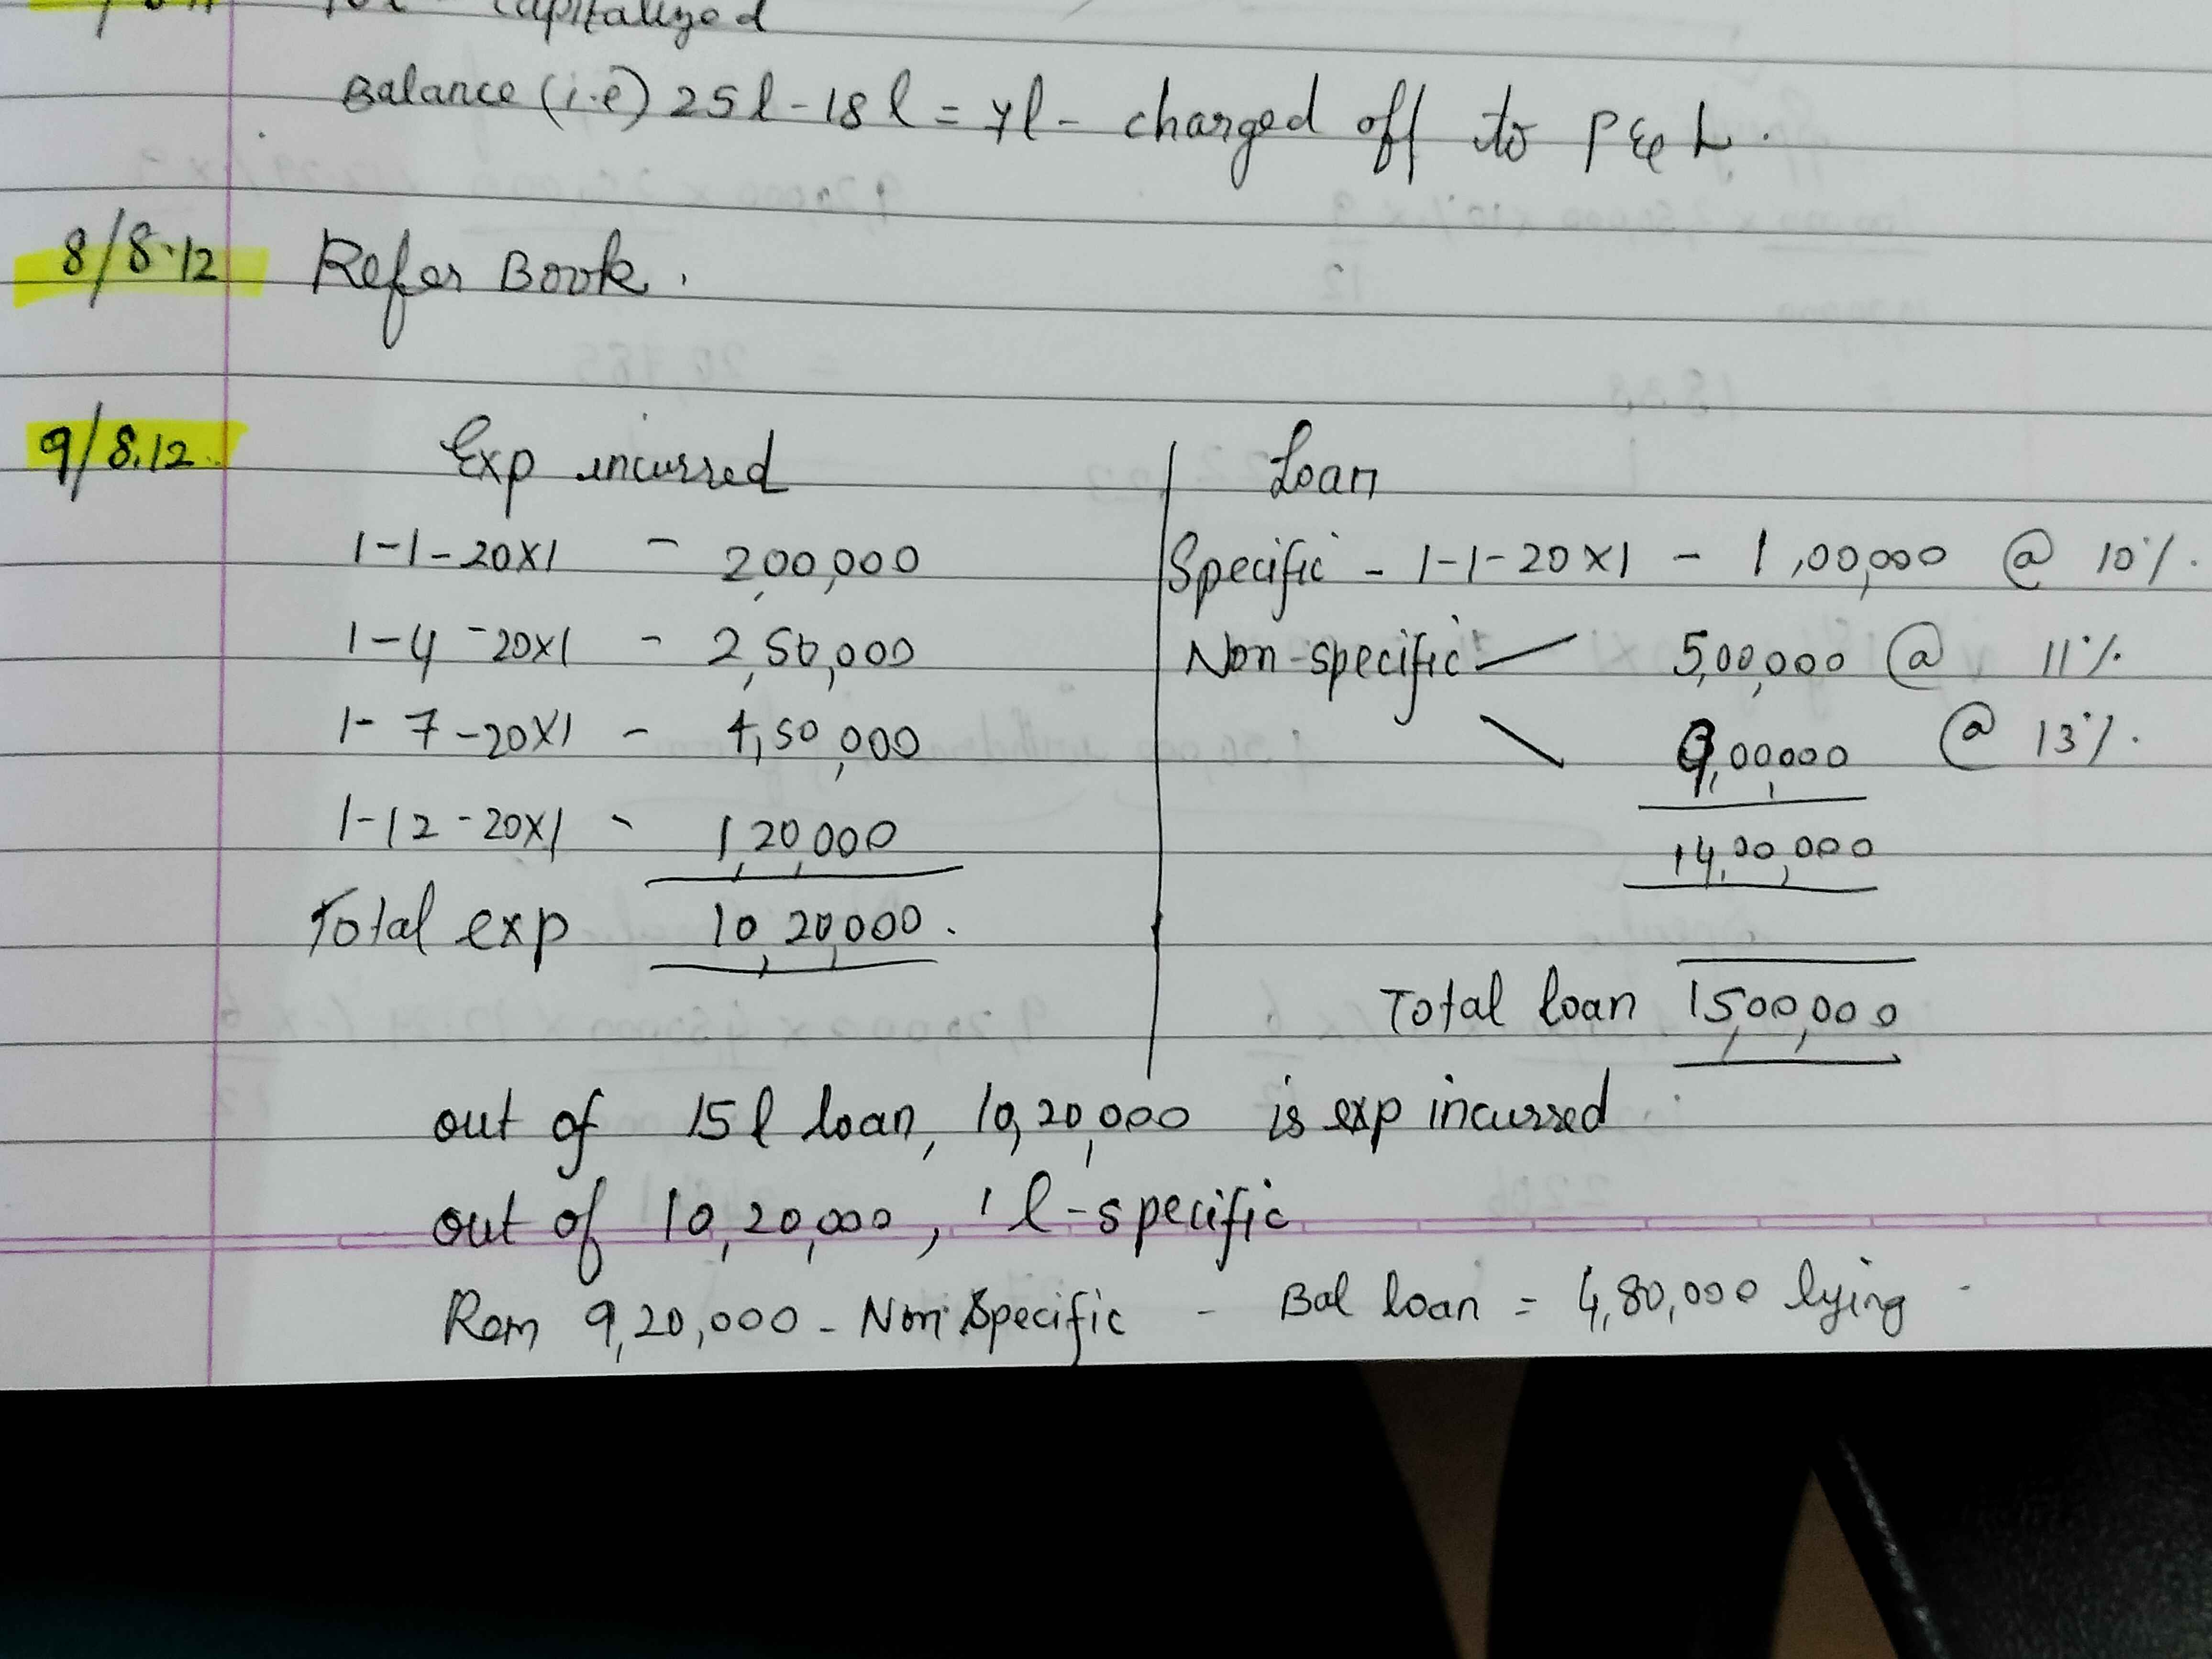 capitalized
Balance (i.e) 25l - 18l = 7l - charged off to P & L.
8/8.12 Refer Book.
9/8.12. Exp incurred Loan
1-1-20X1 - 200,000 Specific - 1-1-20X1 - 1,00,000 @ 10%.
1-4-20X1 - 2,50,000 Non-specific 5,00,000 @ 11%.
1-7-20X1 - 4,50,000 9,00,000 @ 13%.
1-12-20X1 - 1,20,000 14,00,000
Total exp 10,20,000.
Total loan 15,00,000
out of 15l loan, 10,20,000 is exp incurred
out of 10,20,000, 1l-specific
Rem 9,20,000 - Non specific - Bal loan = 4,80,000 lying